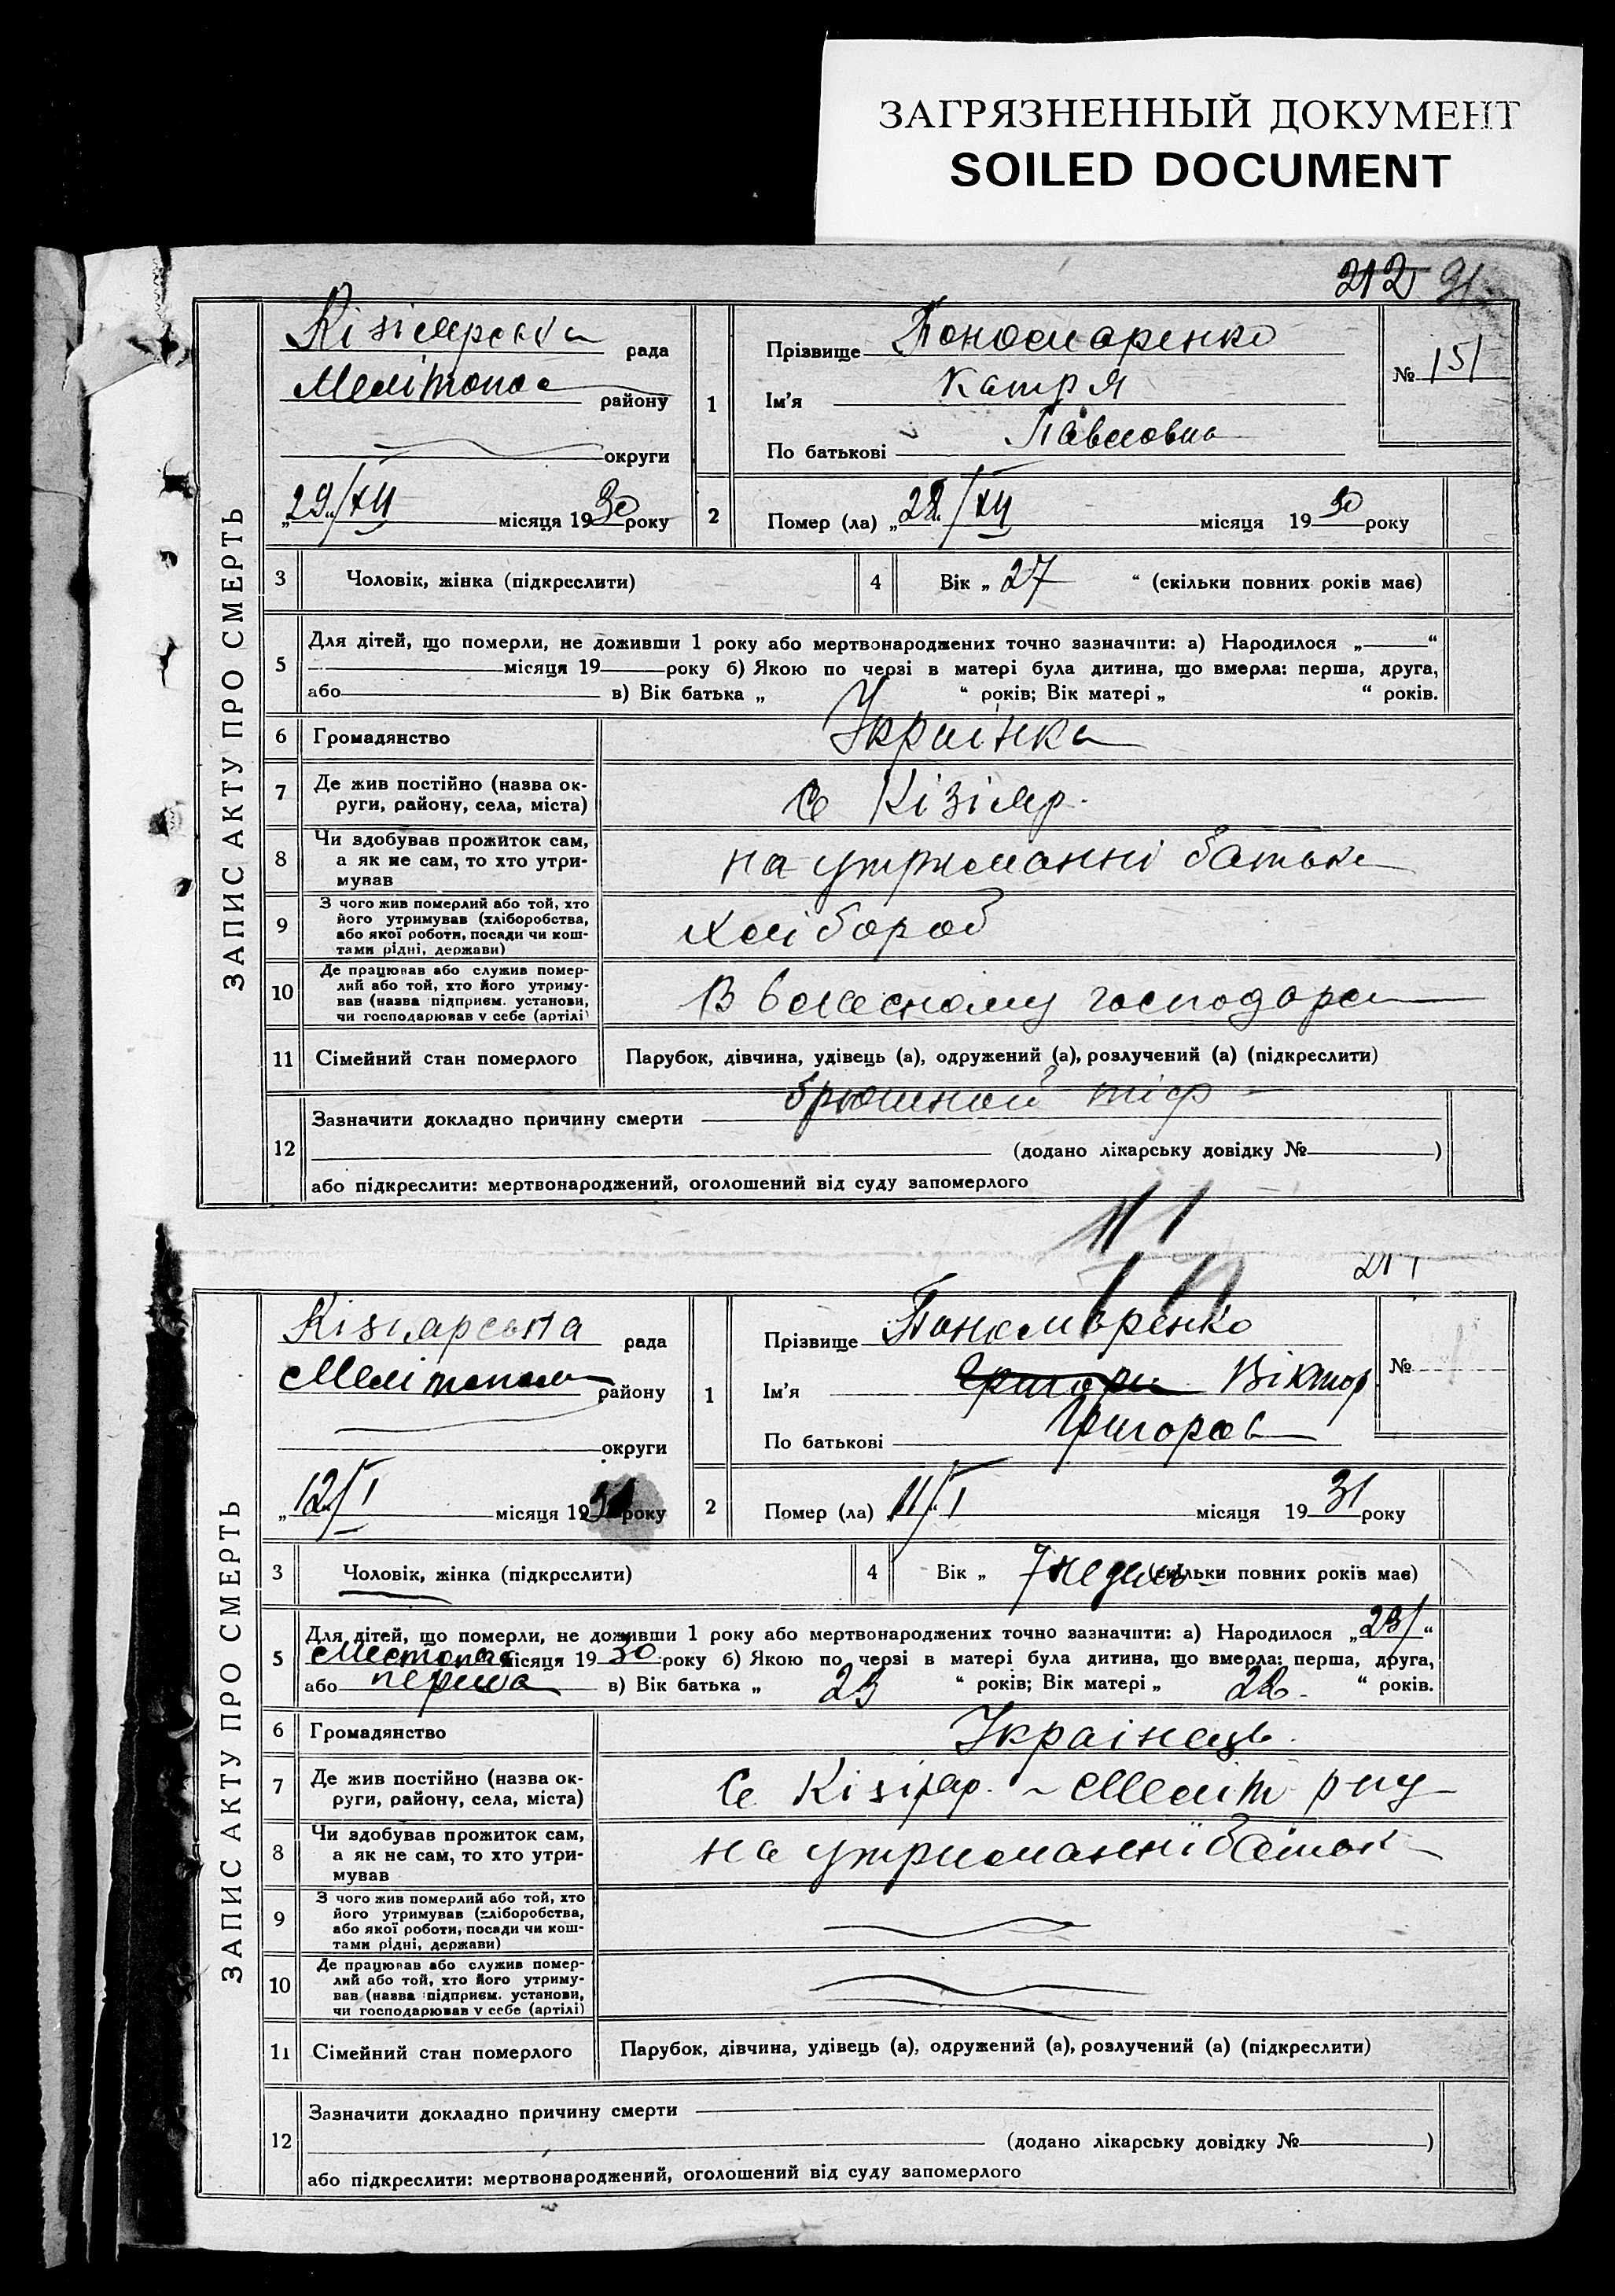 ЗАГРЯЗНЕННЫЙ ДОКУМЕНТ
SOILED DOCUMENT
212
ЗАПИС АКТУ ПРО СМЕРТЬ
Кізіярська рада
Мелітопол району
округи
„29„/XII місяця 1930 року
1
Прізвище Пономаренко
Ім'я Катря
По батькові Павловна
№ 151
2
Помер (ла) „28„/XII місяця 1930 року
3
Чоловік, жінка (підкреслити)
4
Вік „ 27 “ (скільки повних років має)
5
Для дітей, що померли, не доживши 1 року або мертвонароджених точно зазначити: а) Народилося „ “
місяця 19 року б) Якою по черзі в матері була дитина, що вмерла: перша, друга,
або в) Вік батька „ “ років; Вік матері „ “ років.
6
Громадянство
Украінка
7
Де жив постійно (назва ок-
руги, району, села, міста)
с Кізіяр.
8
Чи здобував прожиток сам,
а як не сам, то хто утри-
мував
на утриманні батька
9
З чого жив померлий або той, хто
його утримував (хліборобства,
або якої роботи, посади чи кош-
тами рідні, держави)
хлібороб
10
Де працював або служив помер-
лий або той, хто його утриму-
вав (назва підприєм. установи,
чи господарював у себе (артілі)
В власному господар
11
Сімейний стан померлого
Парубок, дівчина, удівець (а), одружений (а), розлучений (а) (підкреслити)
12
Зазначити докладно причину смерти брюшной тіф
(додано лікарську довідку № )
або підкреслити: мертвонароджений, оголошений від суду запомерлого
ЗАПИС АКТУ ПРО СМЕРТЬ
Кізіярська рада
Мелітопол району
округи
„12„/I місяця 1931 року
1
Прізвище Пономаренко
Ім'я Віктор
По батькові Григоров
№
2
Помер (ла) „11/I місяця 1931 року
3
Чоловік, жінка (підкреслити)
4
Вік „ 7 недель (скільки повних років має)
5
Для дітей, що померли, не доживши 1 року або мертвонароджених точно зазначити: а) Народилося „23/“
місяця 1930 року б) Якою по черзі в матері була дитина, що вмерла: перша, друга,
або перша в) Вік батька „ 23 “ років; Вік матері „ 22 “ років.
6
Громадянство
Украінець
7
Де жив постійно (назва ок-
руги, району, села, міста)
с Кізіяр. Меліт р-ну
8
Чи здобував прожиток сам,
а як не сам, то хто утри-
мував
на утриманні батьк
9
З чого жив померлий або той, хто
його утримував (хліборобства,
або якої роботи, посади чи кош-
тами рідні, держави)
10
Де працював або служив помер-
лий або той, хто його утриму-
вав (назва підприєм. установи,
чи господарював у себе (артілі)
11
Сімейний стан померлого
Парубок, дівчина, удівець (а), одружений (а), розлучений (а) (підкреслити)
12
Зазначити докладно причину смерти
(додано лікарську довідку № )
або підкреслити: мертвонароджений, оголошений від суду запомерлого